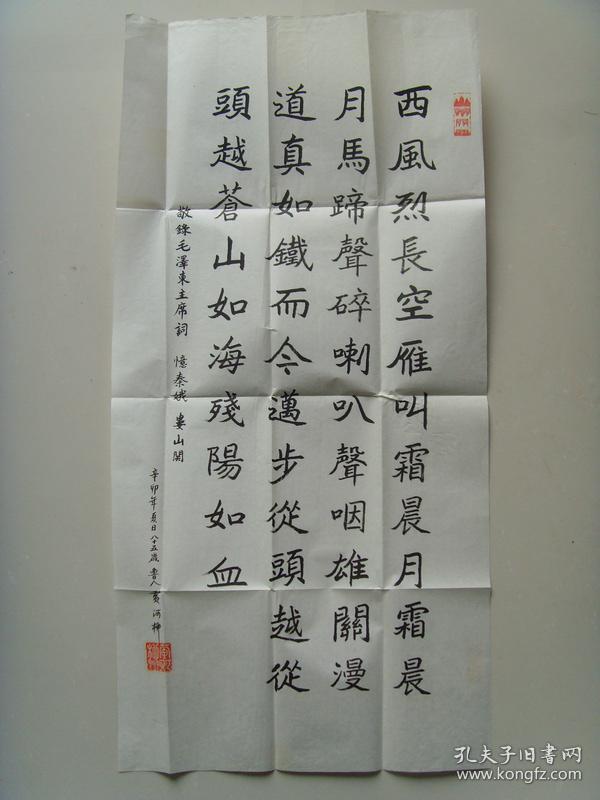 西風烈長空雁叫霜晨月霜晨
月馬蹄聲碎喇叭聲咽雄關漫
道真如鐵而今邁步從頭越從
頭越蒼山如海殘陽如血
敬錄毛澤東主席詞 憶秦娥 婁山関
辛卯年夏日八十五歲 書人
孔夫子旧书网
www.kongfz.com